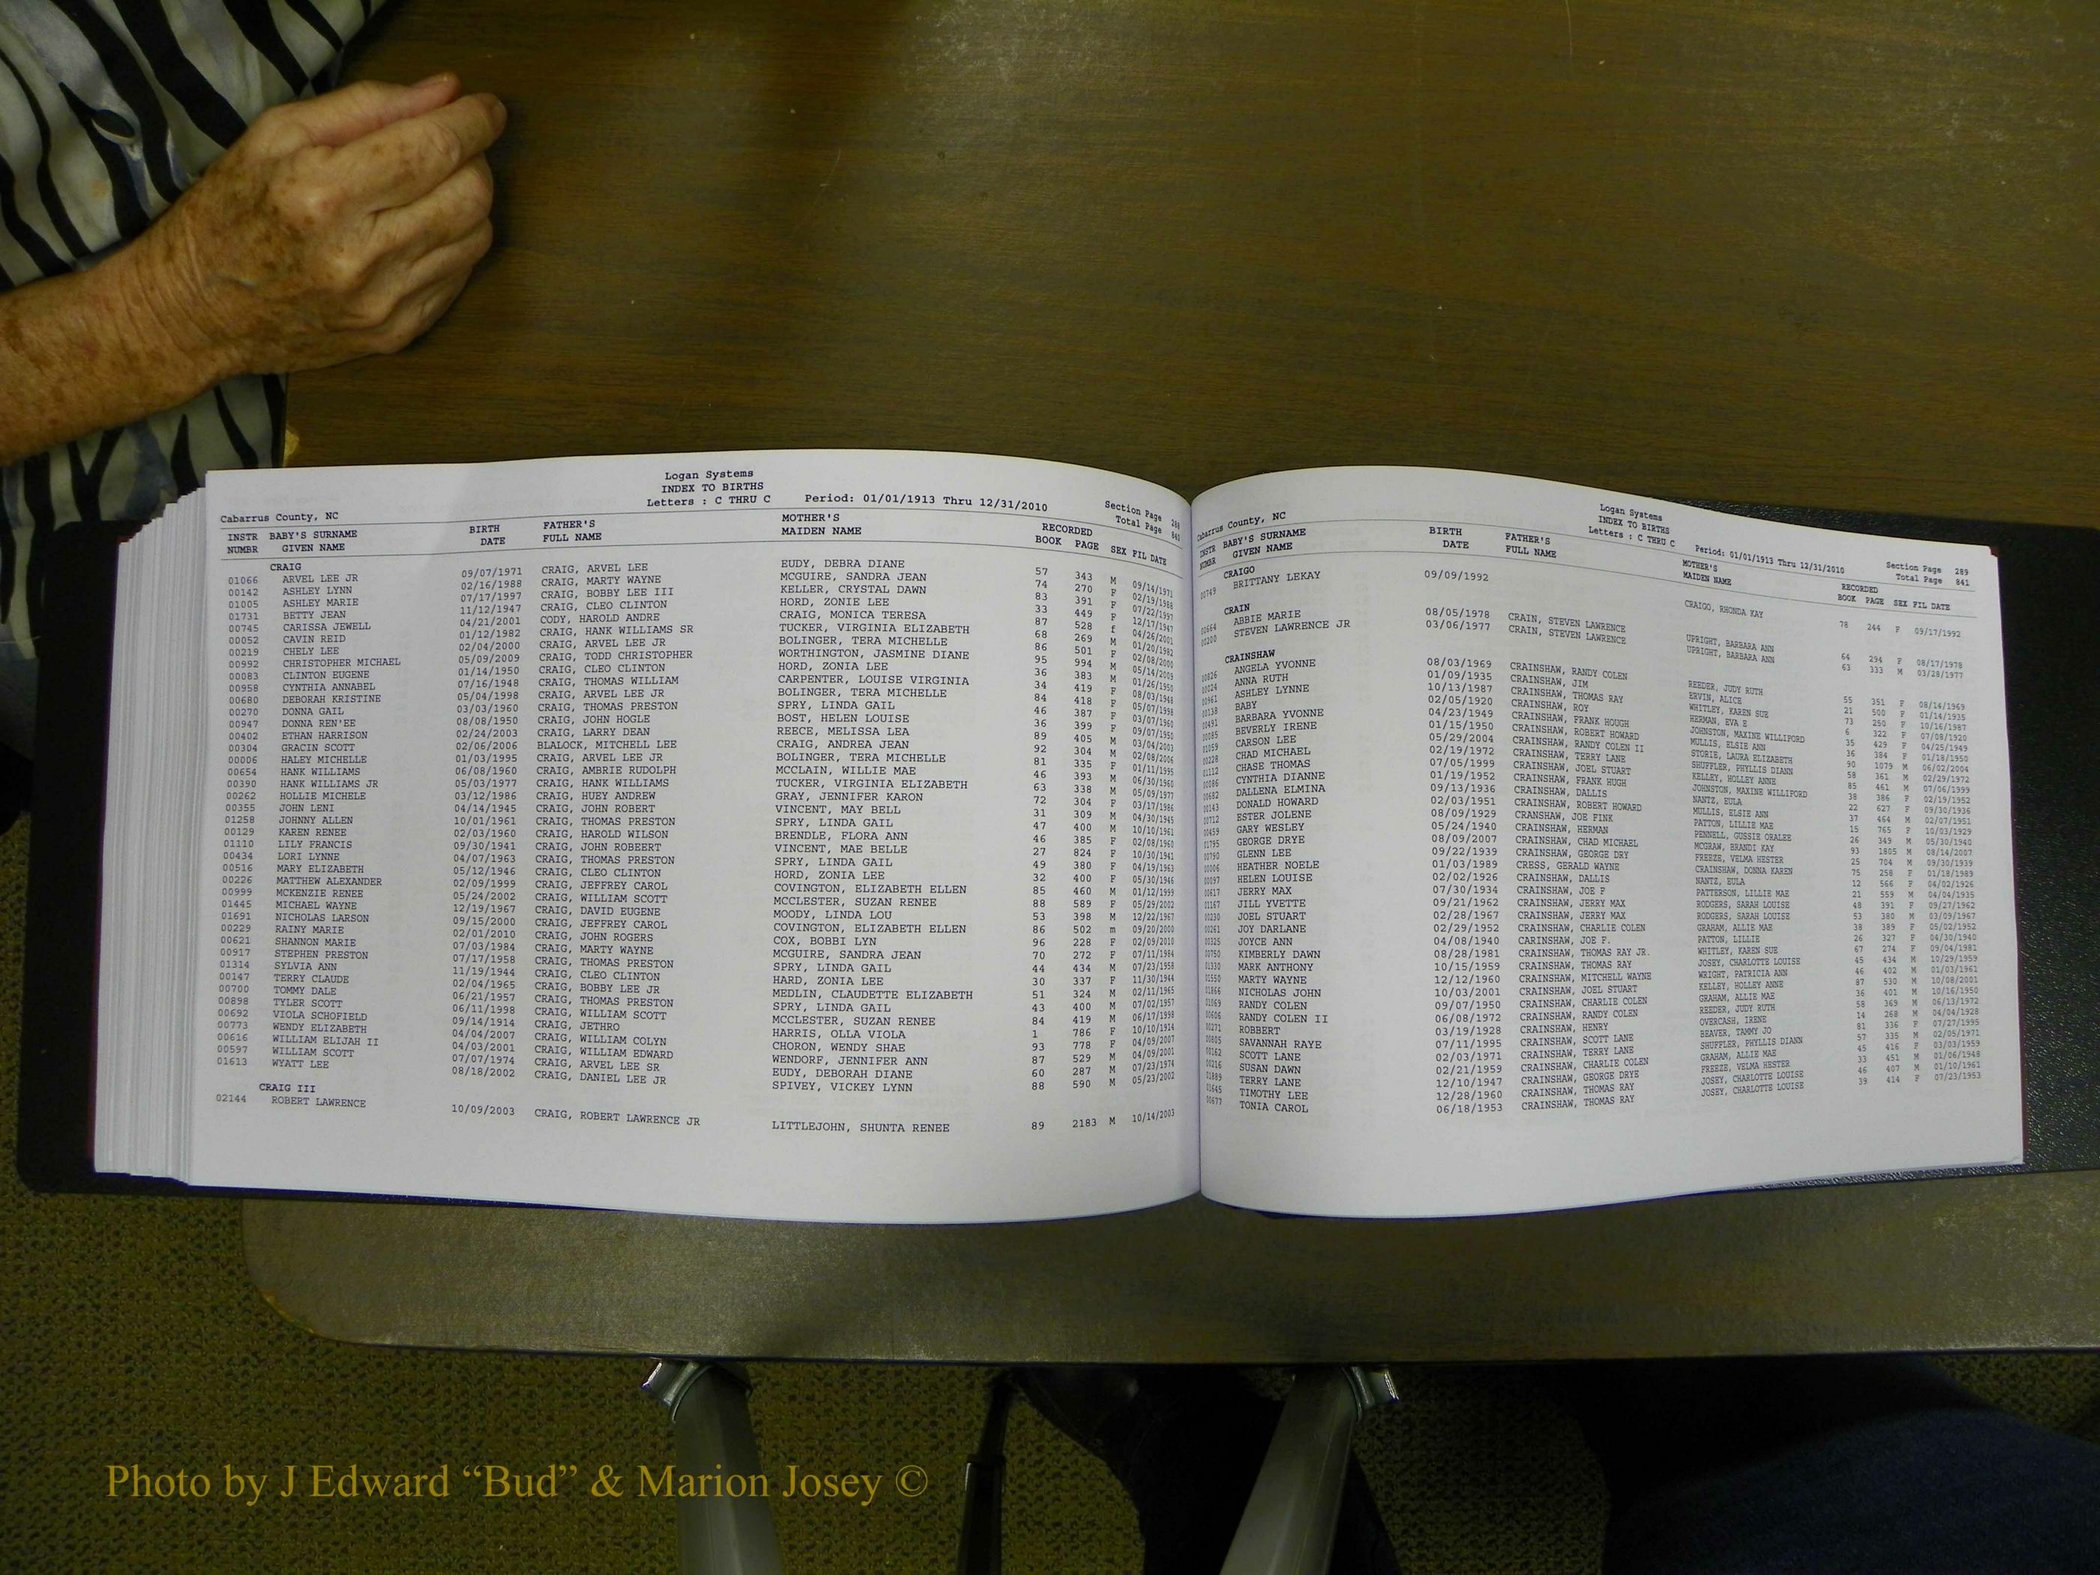 Logan Systems
INDEX TO BIRTHS
Letters : C THRU C Period: 01/01/1913 Thru 12/31/2010
Cabarrus County, NC Section Page 288
Total Page 840
INSTR BABY'S SURNAME BIRTH FATHER'S MOTHER'S RECORDED
NUMBR GIVEN NAME DATE FULL NAME MAIDEN NAME BOOK PAGE SEX FIL DATE
CRAIG
01066 ARVEL LEE JR 09/07/1971 CRAIG, ARVEL LEE EUDY, DEBRA DIANE 57 343 M 09/14/1971
00142 ASHLEY LYNN 02/16/1988 CRAIG, MARTY WAYNE MCGUIRE, SANDRA JEAN 74 270 F 02/19/1988
01005 ASHLEY MARIE 07/17/1997 CRAIG, BOBBY LEE III KELLER, CRYSTAL DAWN 83 391 F 07/22/1997
01731 BETTY JEAN 11/12/1947 CRAIG, CLEO CLINTON HORD, ZONIE LEE 33 449 F 12/17/1947
00745 CARISSA JEWELL 04/21/2001 CODY, HAROLD ANDRE CRAIG, MONICA TERESA 87 528 f 04/26/2001
00052 CAVIN REID 01/12/1982 CRAIG, HANK WILLIAMS SR TUCKER, VIRGINIA ELIZABETH 68 269 M 01/20/1982
00219 CHELY LEE 02/04/2000 CRAIG, ARVEL LEE JR BOLINGER, TERA MICHELLE 86 501 F 02/08/2000
00992 CHRISTOPHER MICHAEL 05/09/2009 CRAIG, TODD CHRISTOPHER WORTHINGTON, JASMINE DIANE 95 994 M 05/14/2009
00083 CLINTON EUGENE 01/14/1950 CRAIG, CLEO CLINTON HORD, ZONIA LEE 36 383 M 01/26/1950
00958 CYNTHIA ANNABEL 07/16/1948 CRAIG, THOMAS WILLIAM CARPENTER, LOUISE VIRGINIA 34 419 F 08/03/1948
00680 DEBORAH KRISTINE 05/04/1998 CRAIG, ARVEL LEE JR BOLINGER, TERA MICHELLE 84 418 F 05/07/1998
00270 DONNA GAIL 03/03/1960 CRAIG, THOMAS PRESTON SPRY, LINDA GAIL 46 387 F 03/07/1960
00947 DONNA REN'EE 08/08/1950 CRAIG, JOHN HOGLE BOST, HELEN LOUISE 36 399 F 09/07/1950
00402 ETHAN HARRISON 02/24/2003 CRAIG, LARRY DEAN REECE, MELISSA LEA 89 405 M 03/04/2003
00304 GRACIN SCOTT 02/06/2006 BLALOCK, MITCHELL LEE CRAIG, ANDREA JEAN 92 304 M 02/08/2006
00006 HALEY MICHELLE 01/03/1995 CRAIG, ARVEL LEE JR BOLINGER, TERA MICHELLE 81 335 F 01/11/1995
00654 HANK WILLIAMS 06/08/1960 CRAIG, AMBRIE RUDOLPH MCCLAIN, WILLIE MAE 46 393 M 06/30/1960
00390 HANK WILLIAMS JR 05/03/1977 CRAIG, HANK WILLIAMS TUCKER, VIRGINIA ELIZABETH 63 338 M 05/09/1977
00262 HOLLIE MICHELE 03/12/1986 CRAIG, HUEY ANDREW GRAY, JENNIFER KARON 72 304 F 03/17/1986
00355 JOHN LENI 04/14/1945 CRAIG, JOHN ROBERT VINCENT, MAY BELL 31 309 M 04/30/1945
01258 JOHNNY ALLEN 10/01/1961 CRAIG, THOMAS PRESTON SPRY, LINDA GAIL 47 400 M 10/10/1961
00129 KAREN RENEE 02/03/1960 CRAIG, HAROLD WILSON BRENDLE, FLORA ANN 46 385 F 02/08/1960
01110 LILY FRANCIS 09/30/1941 CRAIG, JOHN ROBEERT VINCENT, MAE BELLE 27 824 F 10/30/1941
00434 LORI LYNNE 04/07/1963 CRAIG, THOMAS PRESTON SPRY, LINDA GAIL 49 380 F 04/19/1963
00516 MARY ELIZABETH 05/12/1946 CRAIG, CLEO CLINTON HORD, ZONIA LEE 32 400 F 05/30/1946
00226 MATTHEW ALEXANDER 02/09/1999 CRAIG, JEFFREY CAROL COVINGTON, ELIZABETH ELLEN 85 460 M 01/12/1999
00999 MCKENZIE RENEE 05/24/2002 CRAIG, WILLIAM SCOTT MCCLESTER, SUZAN RENEE 88 589 F 05/29/2002
01445 MICHAEL WAYNE 12/19/1967 CRAIG, DAVID EUGENE MOODY, LINDA LOU 53 398 M 12/22/1967
01691 NICHOLAS LARSON 09/15/2000 CRAIG, JEFFREY CAROL COVINGTON, ELIZABETH ELLEN 86 502 m 09/20/2000
00229 RAINY MARIE 02/01/2010 CRAIG, JOHN ROGERS COX, BOBBI LYN 96 228 F 02/09/2010
00621 SHANNON MARIE 07/03/1984 CRAIG, MARTY WAYNE MCGUIRE, SANDRA JEAN 70 272 F 07/11/1984
00917 STEPHEN PRESTON 07/17/1958 CRAIG, THOMAS PRESTON SPRY, LINDA GAIL 44 434 M 07/23/1958
01314 SYLVIA ANN 11/19/1944 CRAIG, CLEO CLINTON HARD, ZONIA LEE 30 337 F 11/30/1944
00147 TERRY CLAUDE 02/04/1965 CRAIG, BOBBY LEE JR MEDLIN, CLAUDETTE ELIZABETH 51 324 M 02/11/1965
00700 TOMMY DALE 06/21/1957 CRAIG, THOMAS PRESTON SPRY, LINDA GAIL 43 400 M 07/02/1957
00898 TYLER SCOTT 06/11/1998 CRAIG, WILLIAM SCOTT MCCLESTER, SUZAN RENEE 84 419 M 06/17/1998
00692 VIOLA SCHOFIELD 09/14/1914 CRAIG, JETHRO HARRIS, OLLA VIOLA 1 786 F 10/10/1914
00773 WENDY ELIZABETH 04/04/2007 CRAIG, WILLIAM COLYN CHORON, WENDY SHAE 93 778 F 04/09/2007
00616 WILLIAM ELIJAH II 04/03/2001 CRAIG, WILLIAM EDWARD WENDORF, JENNIFER ANN 87 529 M 04/09/2001
00597 WILLIAM SCOTT 07/07/1974 CRAIG, ARVEL LEE SR EUDY, DEBORAH DIANE 60 287 M 07/23/1974
01613 WYATT LEE 08/18/2002 CRAIG, DANIEL LEE JR SPIVEY, VICKEY LYNN 88 590 M 05/23/2002
CRAIG III
02144 ROBERT LAWRENCE 10/09/2003 CRAIG, ROBERT LAWRENCE JR LITTLEJOHN, SHUNTA RENEE 89 2183 M 10/14/2003
Logan Systems
INDEX TO BIRTHS
Letters : C THRU C Period: 01/01/1913 Thru 12/31/2010
Cabarrus County, NC Section Page 289
Total Page 841
INSTR BABY'S SURNAME BIRTH FATHER'S MOTHER'S RECORDED
NUMBR GIVEN NAME DATE FULL NAME MAIDEN NAME BOOK PAGE SEX FIL DATE
CRAIGO
00749 BRITTANY LEKAY 09/09/1992 CRAIGO, RHONDA KAY 78 244 F 09/17/1992
CRAIN
00664 ABBIE MARIE 08/05/1978 CRAIN, STEVEN LAWRENCE UPRIGHT, BARBARA ANN 64 294 F 08/17/1978
00200 STEVEN LAWRENCE JR 03/06/1977 CRAIN, STEVEN LAWRENCE UPRIGHT, BARBARA ANN 63 333 M 03/28/1977
CRAINSHAW
00826 ANGELA YVONNE 08/03/1969 CRAINSHAW, RANDY COLEN REEDER, JUDY RUTH 55 351 F 08/14/1969
00024 ANNA RUTH 01/09/1935 CRAINSHAW, JIM ERVIN, ALICE 21 500 F 01/14/1935
00961 ASHLEY LYNNE 10/13/1987 CRAINSHAW, THOMAS RAY WHITLEY, KAREN SUE 73 250 F 10/16/1987
00138 BABY 02/05/1920 CRAINSHAW, ROY HERMAN, EVA E 6 322 F 07/08/1920
00491 BARBARA YVONNE 04/23/1949 CRAINSHAW, FRANK HOUGH JOHNSTON, MAXINE WILLIFORD 35 429 F 04/25/1949
00085 BEVERLY IRENE 01/15/1950 CRAINSHAW, ROBERT HOWARD MULLIS, ELSIE ANN 36 384 F 01/18/1950
01059 CARSON LEE 05/29/2004 CRAINSHAW, RANDY COLEN II STORIE, LAURA ELIZABETH 90 1079 M 06/02/2004
00228 CHAD MICHAEL 02/19/1972 CRAINSHAW, TERRY LANE SHUFFLER, PHYLLIS DIANN 58 361 M 02/29/1972
01112 CHASE THOMAS 07/05/1999 CRAINSHAW, JOEL STUART KELLEY, HOLLEY ANNE 85 461 M 07/06/1999
00086 CYNTHIA DIANNE 01/19/1952 CRAINSHAW, FRANK HUGH JOHNSTON, MAXINE WILLIFORD 38 386 F 02/19/1952
00682 DALLENA ELMINA 09/13/1936 CRAINSHAW, DALLIS NANTZ, EULA 22 627 F 09/30/1936
00143 DONALD HOWARD 02/03/1951 CRAINSHAW, ROBERT HOWARD MULLIS, ELSIE ANN 37 464 M 02/07/1951
00712 ESTER JOLENE 08/09/1929 CRANSHAW, JOE FINK PATTON, LILLIE MAE 15 765 F 10/03/1929
00459 GARY WESLEY 05/24/1940 CRAINSHAW, HERMAN PENNELL, GUSSIE ORALEE 26 349 M 05/30/1940
01795 GEORGE DRYE 08/09/2007 CRAINSHAW, CHAD MICHAEL MCGRAW, BRANDI KAY 93 1805 M 08/14/2007
00790 GLENN LEE 09/22/1939 CRAINSHAW, GEORGE DRY FREEZE, VELMA HESTER 25 704 M 09/30/1939
00006 HEATHER NOELE 01/03/1989 CRESS, GERALD WAYNE CRAINSHAW, DONNA KAREN 75 258 F 01/18/1989
00097 HELEN LOUISE 02/02/1926 CRAINSHAW, DALLIS NANTZ, EULA 12 566 F 04/02/1926
00617 JERRY MAX 07/30/1934 CRAINSHAW, JOE F PATTERSON, LILLIE MAE 21 559 M 04/04/1935
01167 JILL YVETTE 09/21/1962 CRAINSHAW, JERRY MAX RODGERS, SARAH LOUISE 48 391 F 09/27/1962
00230 JOEL STUART 02/28/1967 CRAINSHAW, JERRY MAX RODGERS, SARAH LOUISE 53 380 M 03/09/1967
00261 JOY DARLANE 02/29/1952 CRAINSHAW, CHARLIE COLEN GRAHAM, ALLIE MAE 38 389 F 05/02/1952
00325 JOYCE ANN 04/08/1940 CARINSHAW, JOE F. PATTON, LILLIE 26 327 F 04/30/1940
00750 KIMBERLY DAWN 08/28/1981 CRAINSHAW, THOMAS RAY JR. WHITLEY, KAREN SUE 67 274 F 09/04/1981
01330 MARK ANTHONY 10/15/1959 CRAINSHAW, THOMAS RAY JOSEY, CHARLOTTE LOUISE 45 434 M 10/29/1959
00550 MARTY WAYNE 12/12/1960 CRAINSHAW, MITCHELL WAYNE WRIGHT, PATRICIA ANN 46 402 M 01/03/1961
01866 NICHOLAS JOHN 10/03/2001 CRAINSHAW, JOEL STUART KELLEY, HOLLEY ANNE 87 530 M 10/08/2001
01069 RANDY COLEN 09/07/1950 CRAINSHAW, CHARLIE COLEN GRAHAM, ALLIE MAE 36 401 M 10/16/1950
00606 RANDY COLEN II 06/08/1972 CRAINSHAW, RANDY COLEN REEDER, JUDY RUTH 58 369 M 06/13/1972
00271 ROBBERT 03/19/1928 CRAINSHAW, HENRY OVERCASH, IRENE 14 268 M 04/04/1928
00805 SAVANNAH RAYE 07/11/1995 CRAINSHAW, SCOTT LANE BEAVER, TAMMY JO 81 336 F 07/27/1995
00162 SCOTT LANE 02/03/1971 CRAINSHAW, TERRY LANE SHUFFLER, PHYLLIS DIANN 57 335 M 02/05/1971
00216 SUSAN DAWN 02/21/1959 CRAINSHAW, CHARLIE COLEN GRAHAM, ALLIE MAE 45 416 F 03/03/1959
01889 TERRY LANE 12/10/1947 CRAINSHAW, GEORGE DRYE FREEZE, VELMA HESTER 33 451 M 01/06/1948
01645 TIMOTHY LEE 12/28/1960 CRAINSHAW, THOMAS RAY JOSEY, CHARLOTTE LOUISE 46 407 M 01/10/1961
00677 TONIA CAROL 06/18/1953 CRAINSHAW, THOMAS RAY JOSEY, CHARLOTTE LOUISE 39 414 F 07/23/1953
Photo by J Edward “Bud” & Marion Josey ©